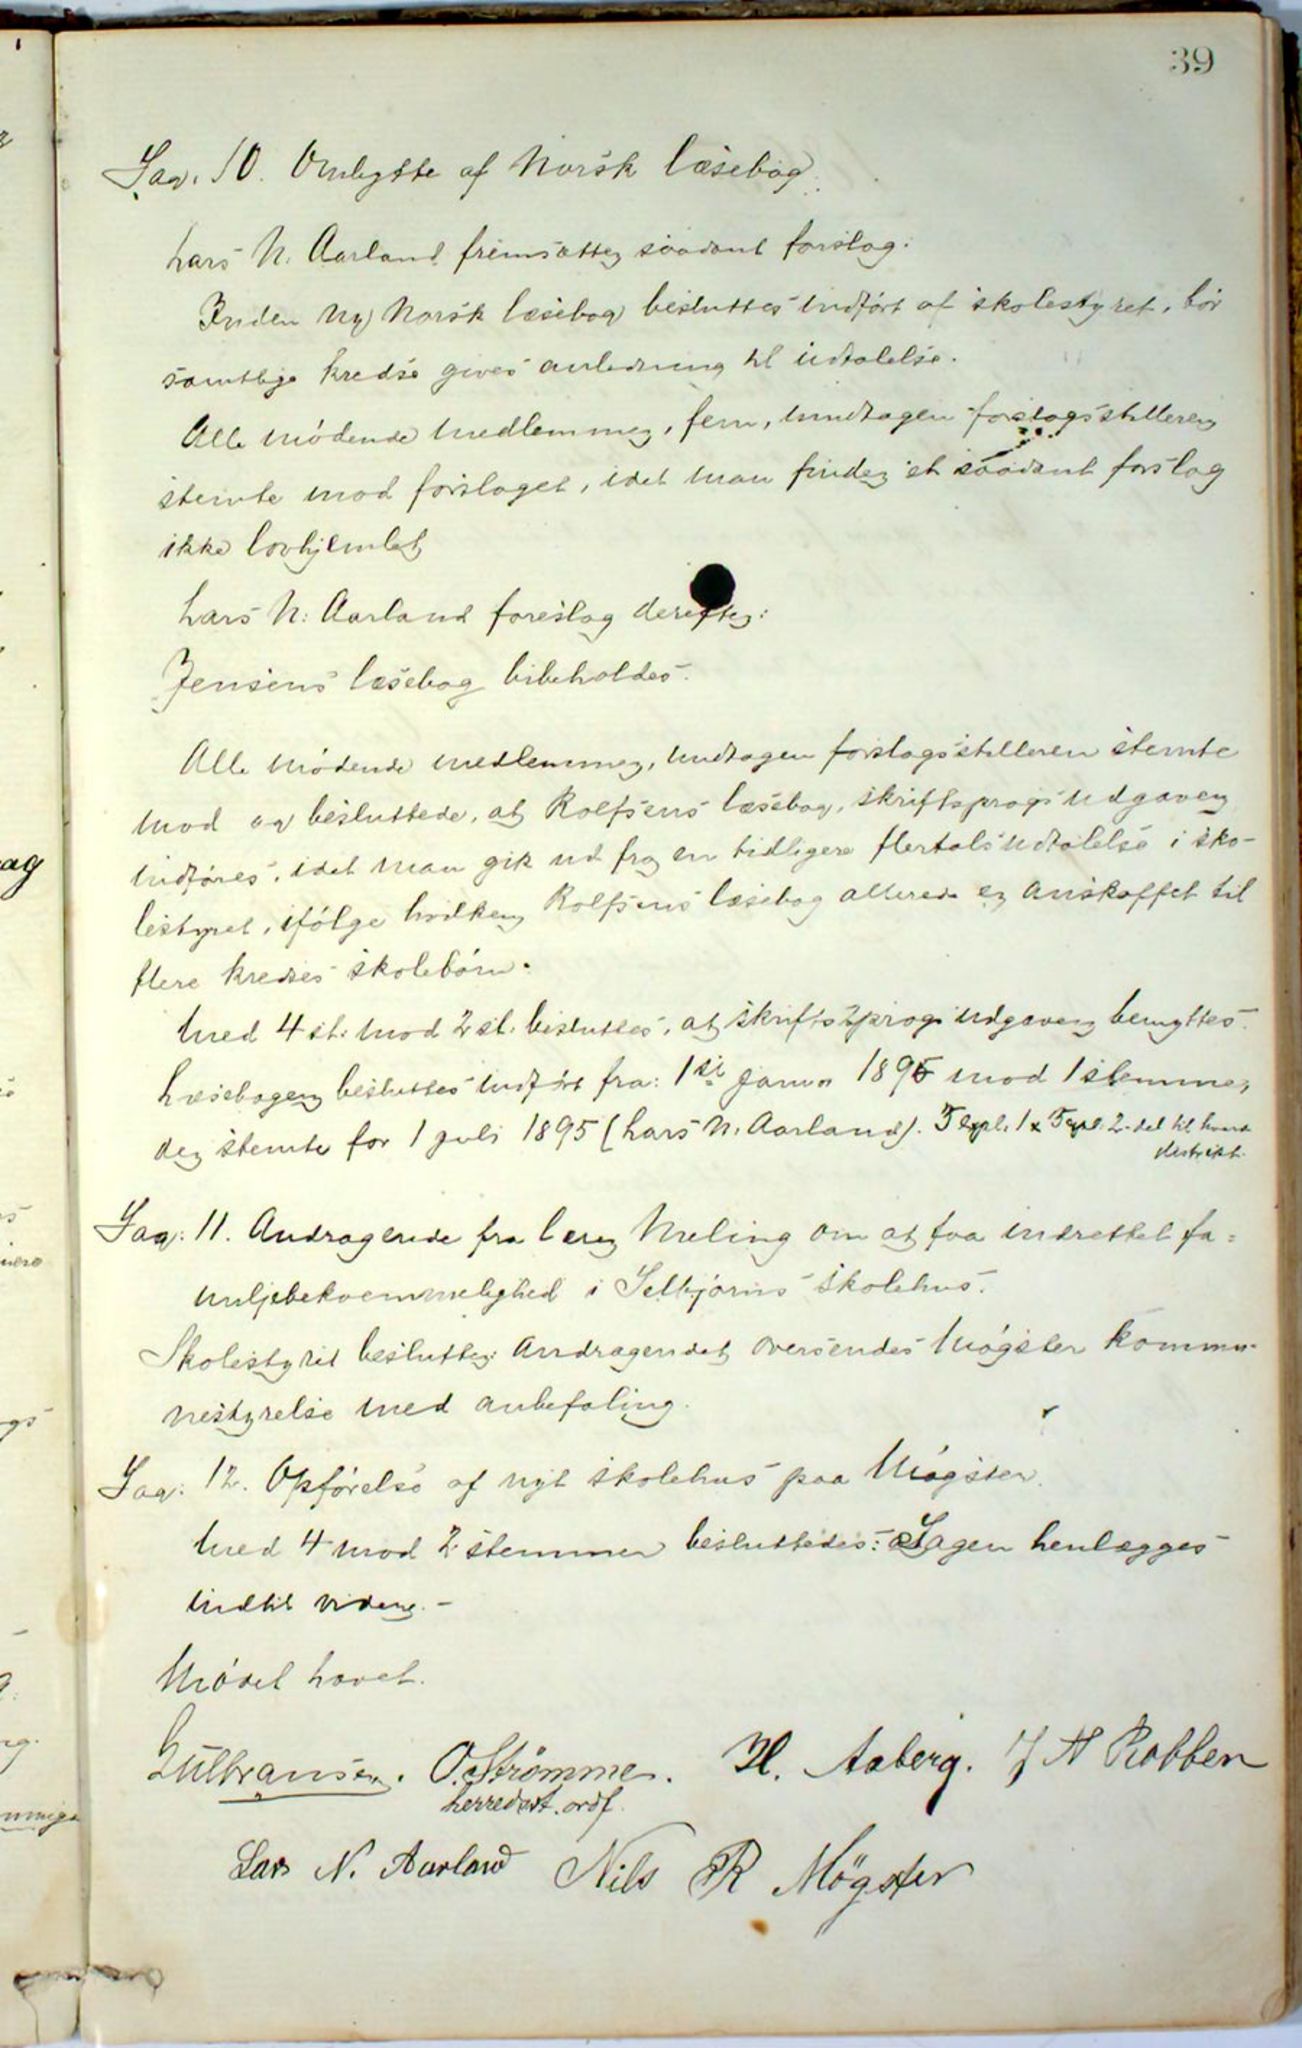 39
Sag. 10. Ombytte af Norsk læsebog.
Lars N. Aarland fremsatte saadant forslag:
Inden ny Norsk læsebog besluttes indført af skolestyret, bør
samtlige kredse gives anledning til udtalelse.
Alle mødende medlemmer, fem, undtagen forslagsstilleren
stemte mod forslaget, idet man finder et saadant forslag
ikke lovhjemlet
Lars N. Aarland foreslog derefter:
Jensens læsebog bibeholdes.
Alle mødende medlemmer, undtagen forslagsstilleren stemte
mod og besluttede, at Rolfsens læsebog, skriftsprogsudgaven
indføres, idet man gik ud fra en tidligere flertalsudtalelse i sko-
lestyret, ifølge hvilken Rolfsens læsebog allerede er anskaffet til
flere kredses skolebørn.
Med 4 st. mod 2 st. besluttes, at skriftsprogsudgaven benyttes.
Læsebogen besluttes indført fra: 1ste Januar 1896 mod 1 stemme,
der stemte for 1 juli 1895 (Lars N. Aarland). 5 expl. 1 x 5 expl. 2. del til hvert
distrikt.
Sag: 11. Andragende fra lærer Meling om at faa indrettet fa=
miljebekvemmelighed i Selbjørns skolehus.
Skolestyret beslutter: Andragendet oversendes Møgster kommu-
nestyrelse med anbefaling.
Sag: 12. Opførelse af nyt skolehus paa Møgster.
Med 4 mod 2 stemmer besluttedes: Sagen henlægges
indtil videre. -
Mødet hævet.
Gulbransen. O. Strømme. H. Aaberg. J N Rabben
herredsst. ordf.
Lars N. Aarland Nils R Møgster